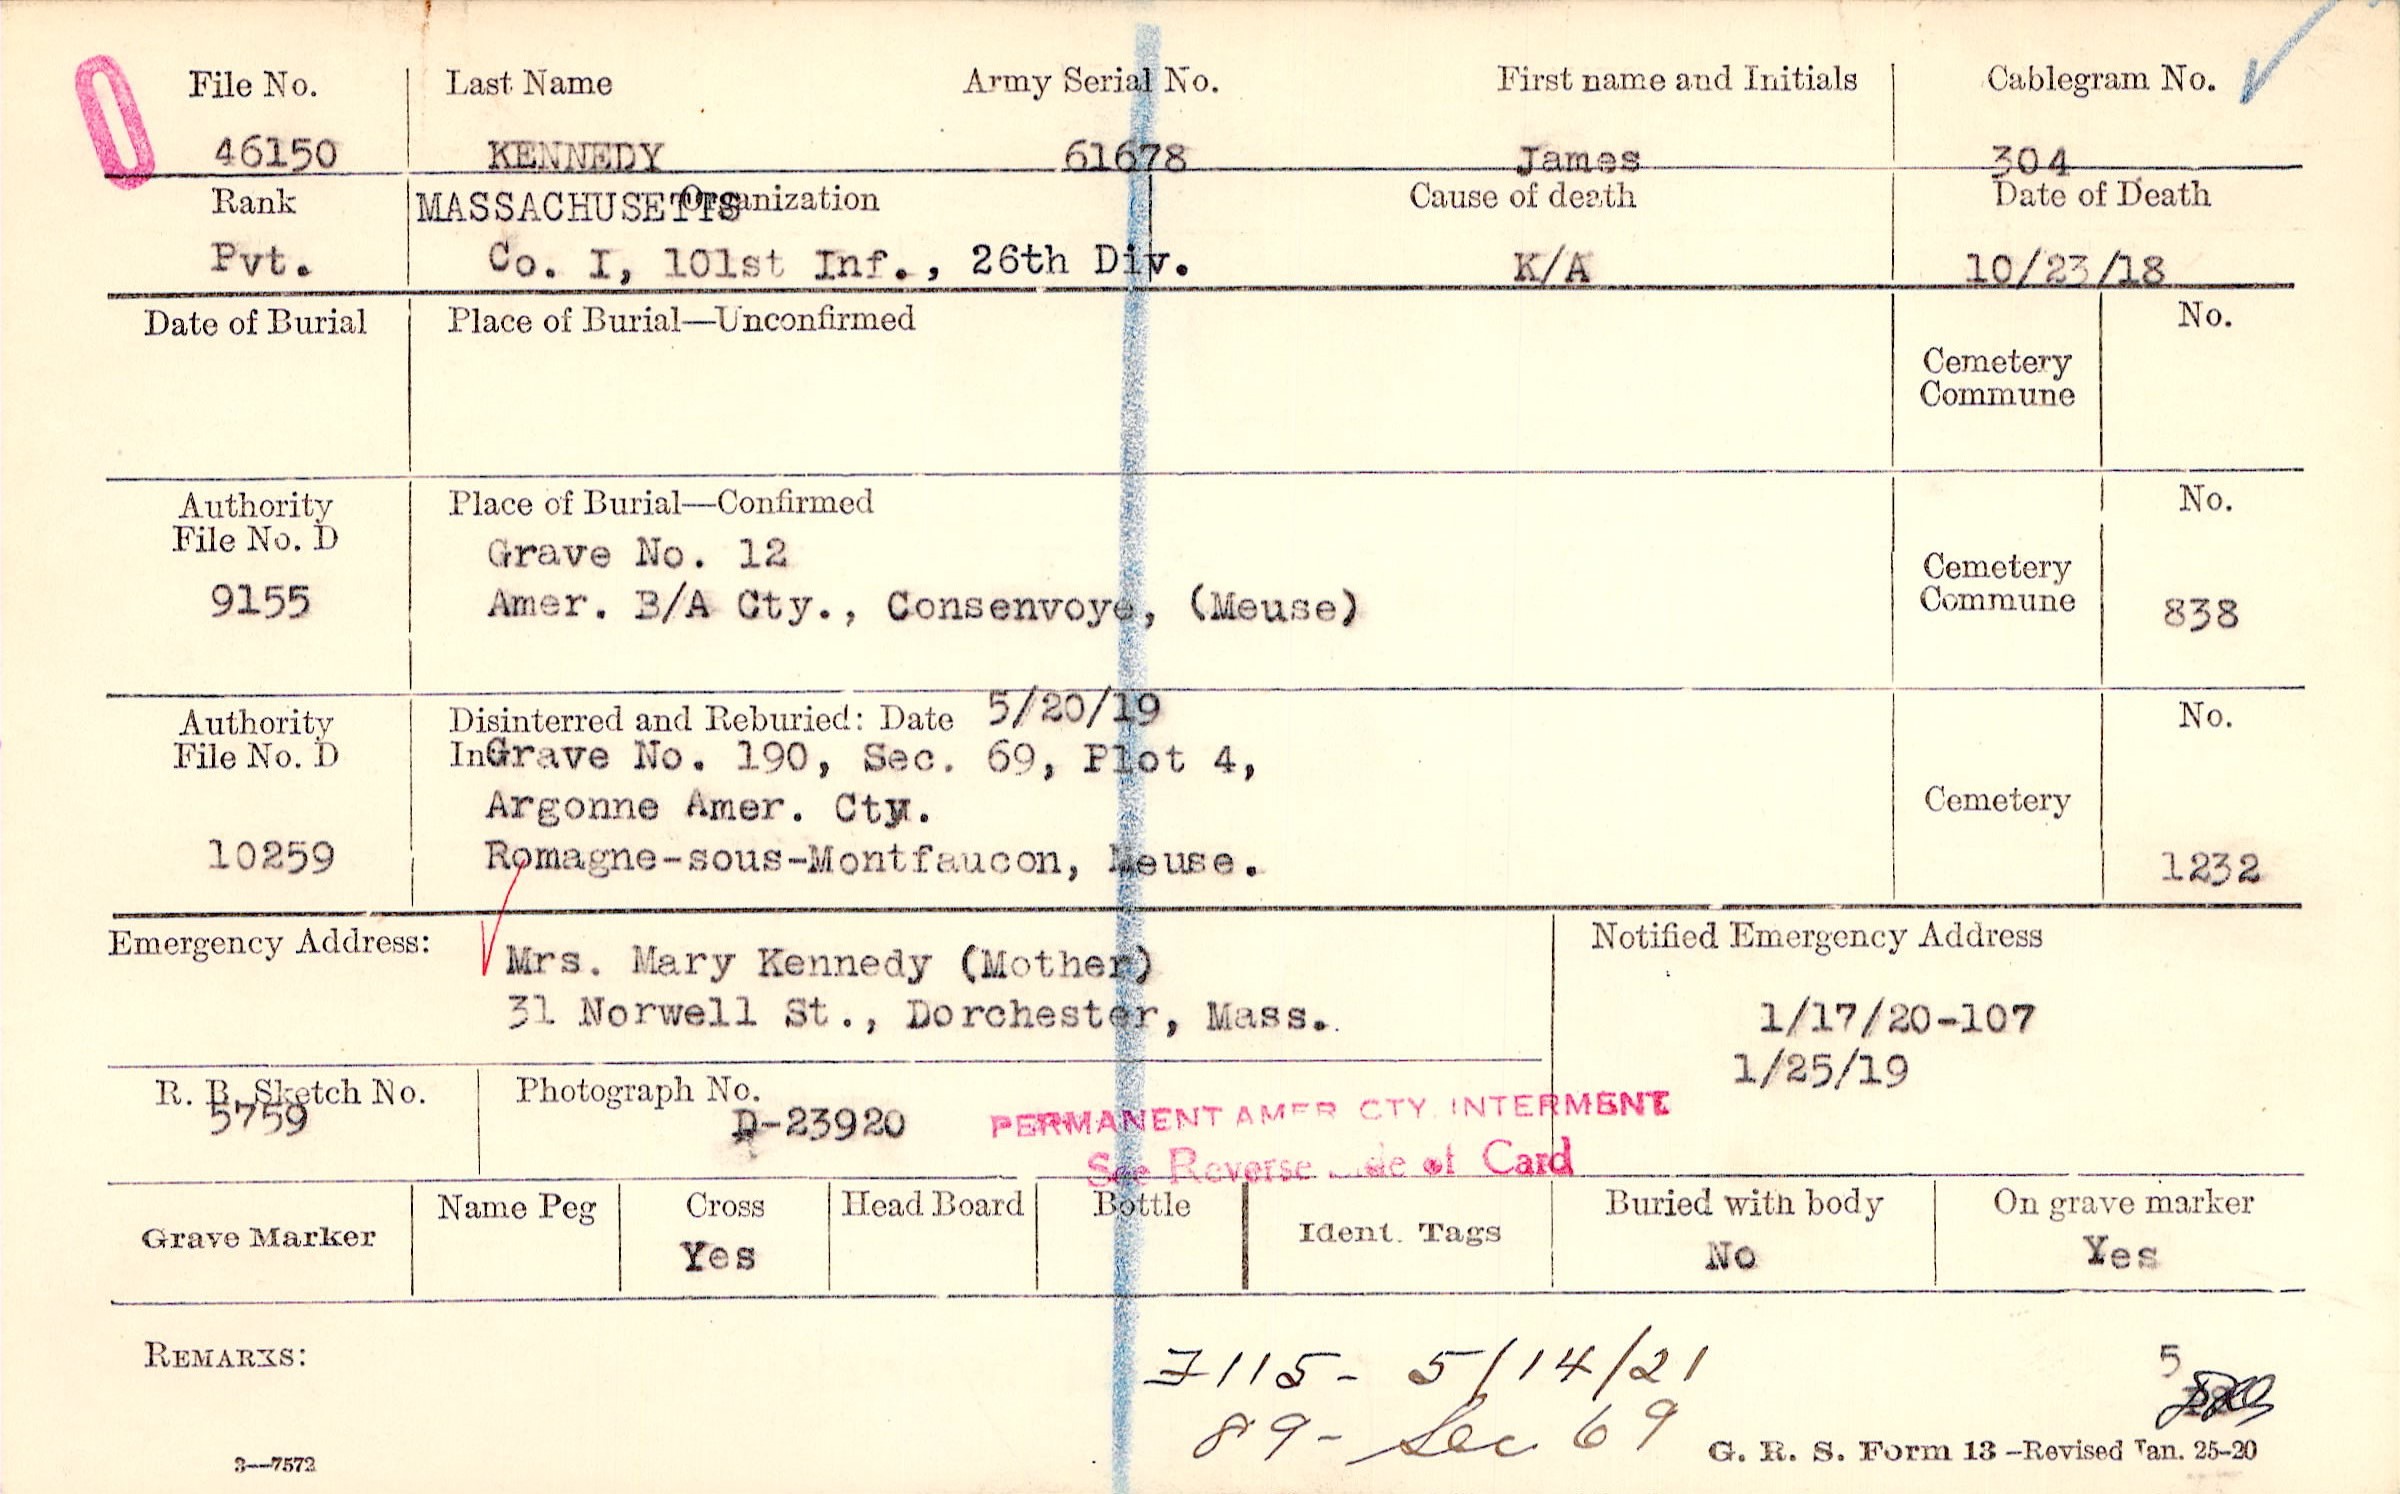 File No. Last Name Army Serial No. First name and Initials Cablegram No.
46150 KENNEDY 61678 James 304
Rank MASSACHUSETTS Organization Cause of death Date of Death
Pvt. Co. I, 101st Inf., 26th Div. K/A 10/23/18
Date of Burial Place of Burial—Unconfirmed No.
Cemetery
Commune
Authority Place of Burial—Confirmed No.
File No. D
Grave No. 12
Cemetery
9155 Amer. B/A Cty., Consenvoye, (Meuse) Commune 838
Authority Disinterred and Reburied: Date 5/20/19 No.
File No. D In Grave No. 190, Sec. 69, Plot 4,
Argonne Amer. Cty. Cemetery
10259 Romagne-sous-Montfaucon, Meuse. 1232
Emergency Address: Notified Emergency Address
Mrs. Mary Kennedy (Mother)
31 Norwell St., Dorchester, Mass. 1/17/20-107
1/25/19
R. B. Sketch No. Photograph No.
5759 D-23920 PERMANENT AMER CTY. INTERMENT
See Reverse Side of Card
Grave Marker Name Peg Cross Head Board Bottle Ident. Tags Buried with body On grave marker
Yes No Yes
REMARKS: 7115- 5/14/21 5
89- Sec 69
3—7572 G. R. S. Form 13 —Revised Jan. 25-20